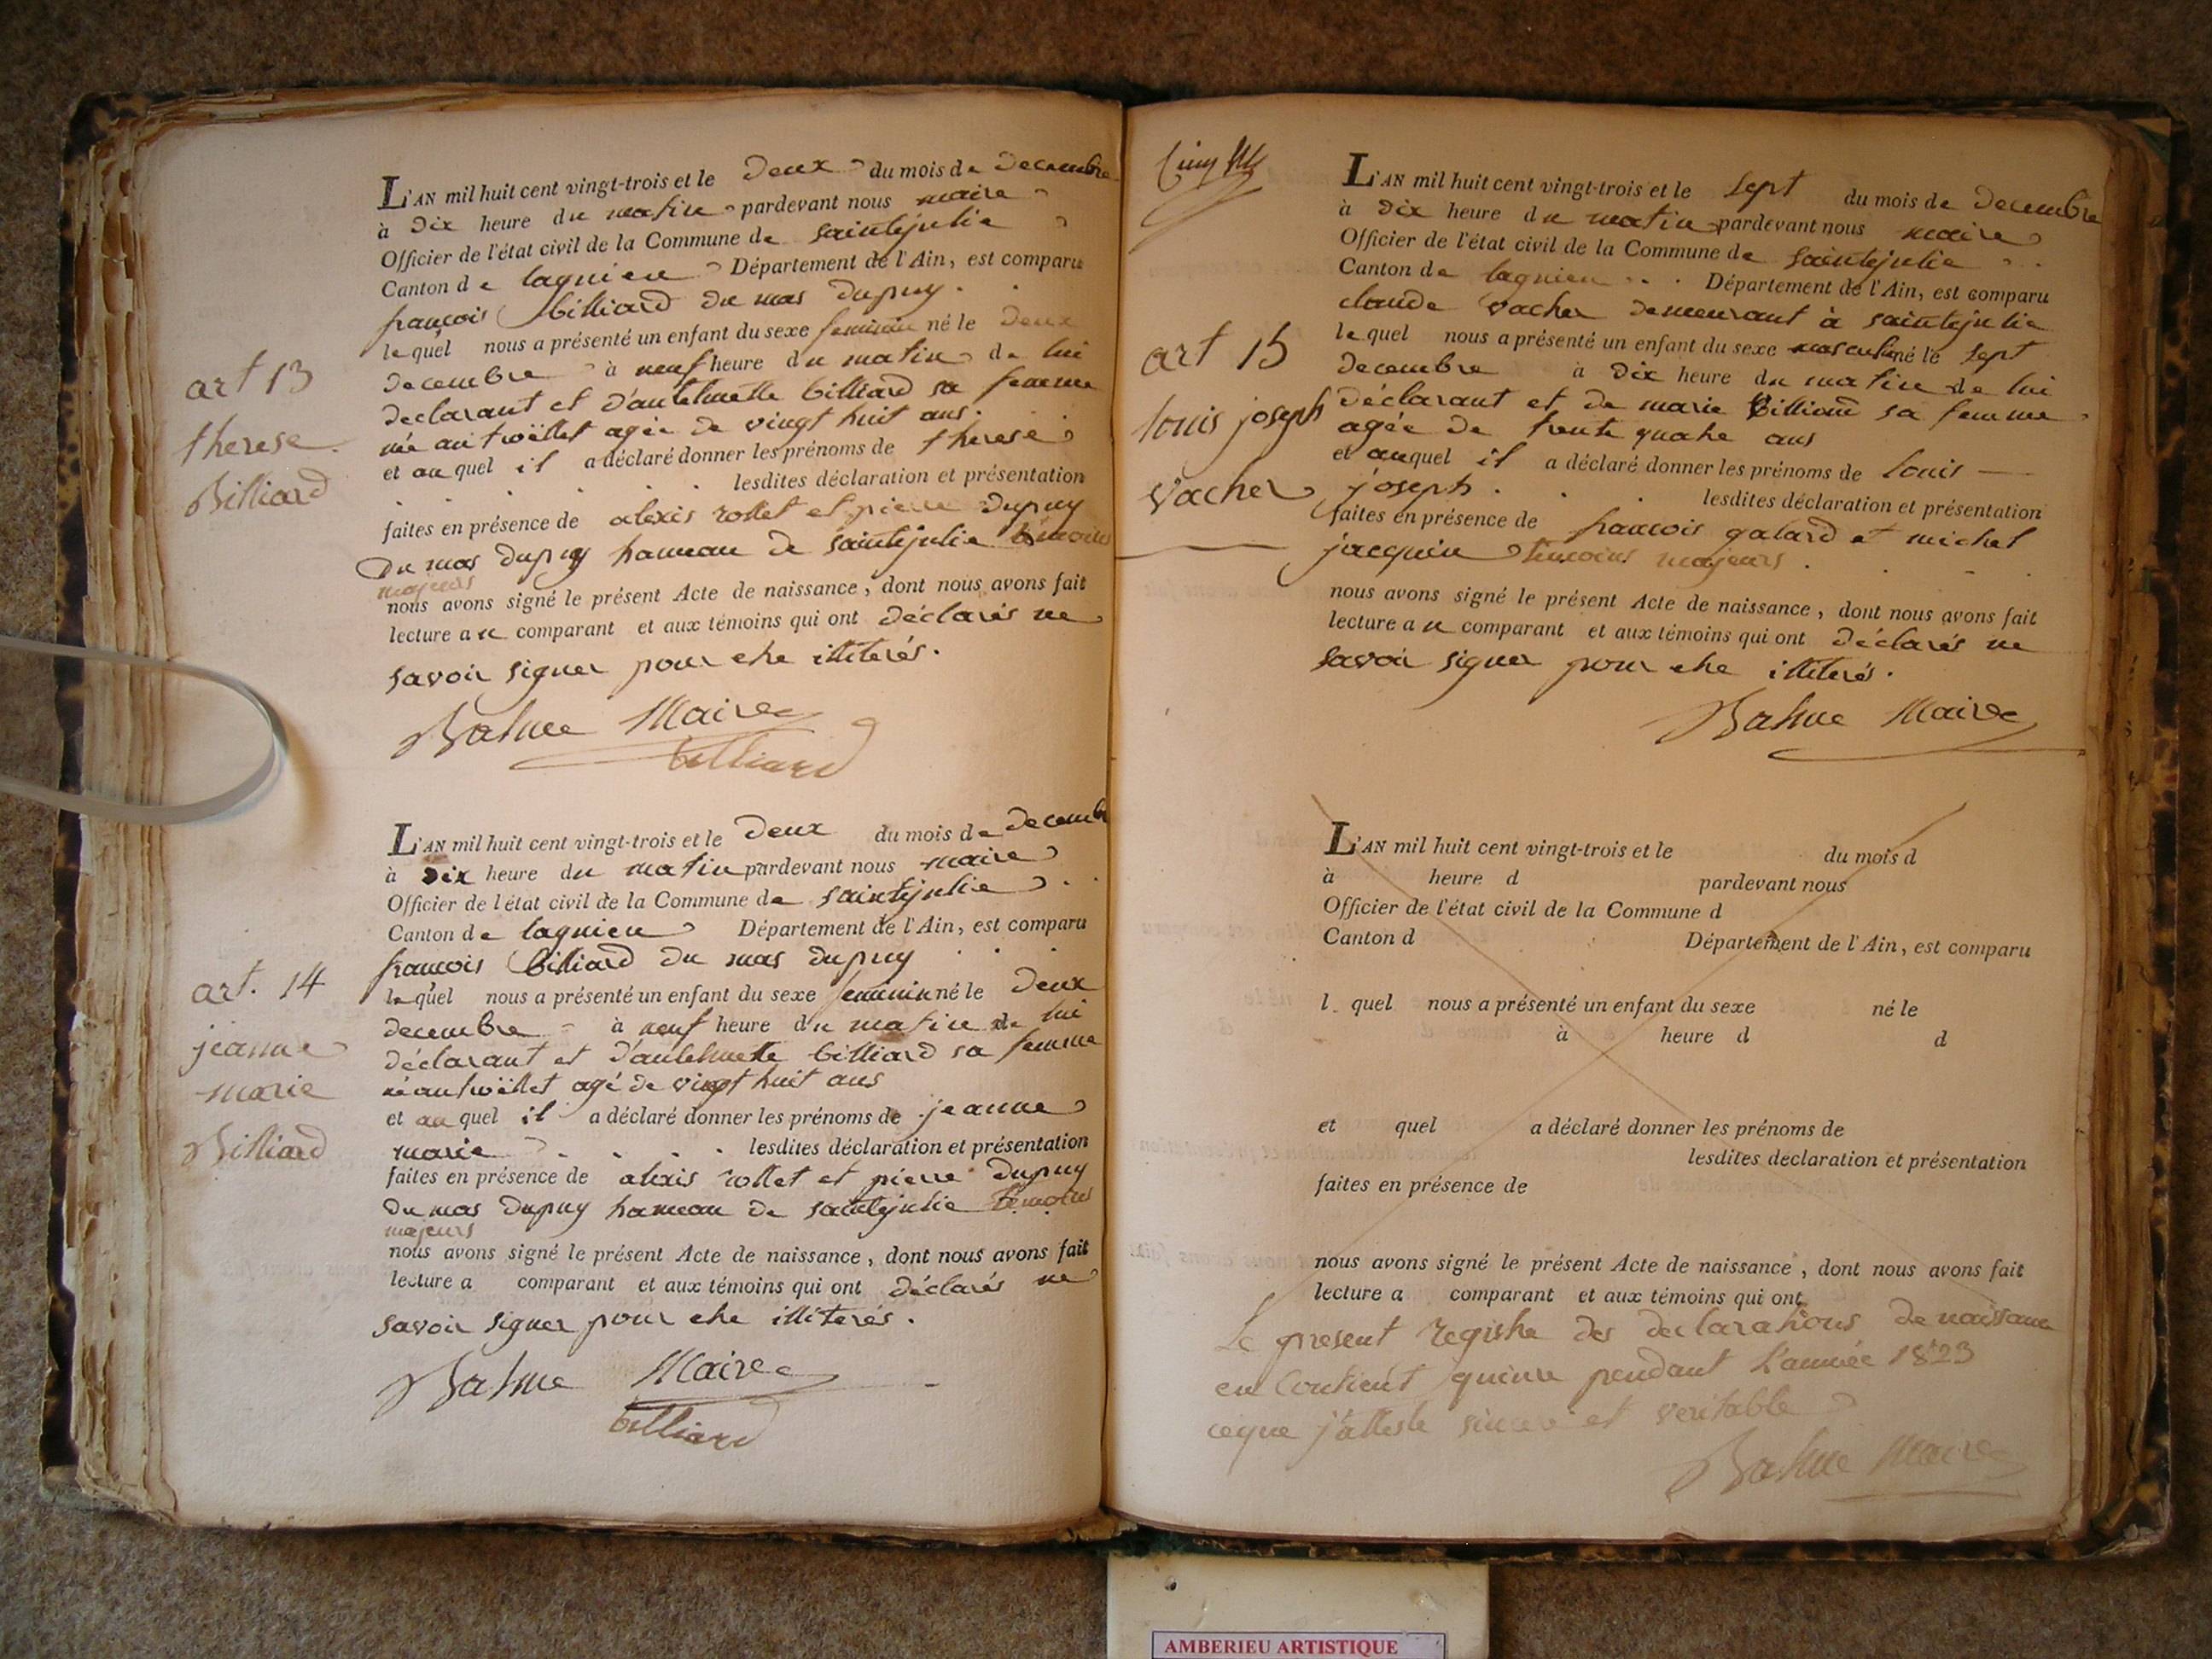 L'AN mil huit cent vingt-trois et le deux du mois de decembre
à dix heure du matin pardevant nous maire
Officier de l'état civil de la Commune de saintejulie
Canton de lagnieu Département de l'Ain, est comparu
françois billiard du mas dupuy.
lequel nous a présenté un enfant du sexe feminin né le deux
decembre à neuf heure du matin de lui
declarant et d'antelmette billiard sa femme
agée de vingt huit ans.
et auquel il a déclaré donner les prénoms de therese
lesdites déclaration et présentation
faites en présence de alexis rollet et pierre dupuy
du mas dupuy hameau de saintejulie témoins
majeurs
nous avons signé le présent Acte de naissance, dont nous avons fait
lecture au comparant et aux témoins qui ont déclarés ne
savoir signer pour etre illiterés.
Balme Maire
billiard
art 13
therese
Billiard
L'AN mil huit cent vingt-trois et le deux du mois de decembr
à dix heure du matin pardevant nous maire
Officier de l'état civil de la Commune de saintejulie
Canton de lagnieu Département de l'Ain, est comparu
françois billiard du mas dupuy
lequel nous a présenté un enfant du sexe feminin né le deux
decembre à neuf heure du matin de lui
déclarant et d'antelmette billiard sa femme
agé de vingt huit ans
et auquel il a déclaré donner les prénoms de jeanne
marie lesdites déclaration et présentation
faites en présence de alexis rollet et pierre dupuy
du mas dupuy hameau de saintejulie témoins
majeurs
nous avons signé le présent Acte de naissance, dont nous avons fait
lecture a comparant et aux témoins qui ont déclarés ne
savoir signer pour etre illiterés.
Balme Maire
billiard
art. 14
jeanne
marie
Billiard
L'AN mil huit cent vingt-trois et le sept du mois de decembre
à dix heure du matin pardevant nous maire
Officier de l'état civil de la Commune de saintejulie
Canton de lagnieu Département de l'Ain, est comparu
claude vacher demeurant à saintejulie
lequel nous a présenté un enfant du sexe masculin né le sept
decembre à dix heure du matin de lui
déclarant et de marie sa femme
agée de trente quatre ans
et auquel il a déclaré donner les prénoms de louis
joseph. lesdites déclaration et présentation
faites en présence de francois galard et michel
jacquin témoins majeurs.
nous avons signé le présent Acte de naissance, dont nous avons fait
lecture au comparant et aux témoins qui ont déclarés ne
savoir signer pour etre illiterés.
Balme Maire
art 15
louis joseph
vacher
L'AN mil huit cent vingt-trois et le du mois d
à heure d pardevant nous
Officier de l'état civil de la Commune d
Canton d Département de l'Ain, est comparu
l quel nous a présenté un enfant du sexe né le
à heure d d
et quel a déclaré donner les prénoms de
lesdites declaration et présentation
faites en présence de
nous avons signé le présent Acte de naissance, dont nous avons fait
lecture a comparant et aux témoins qui ont
Le present registre des declarations de naissance
en contient quinze pendant l'année 1823
ceque j'atteste sincere et veritable
Balme Maire
AMBERIEU ARTISTIQUE